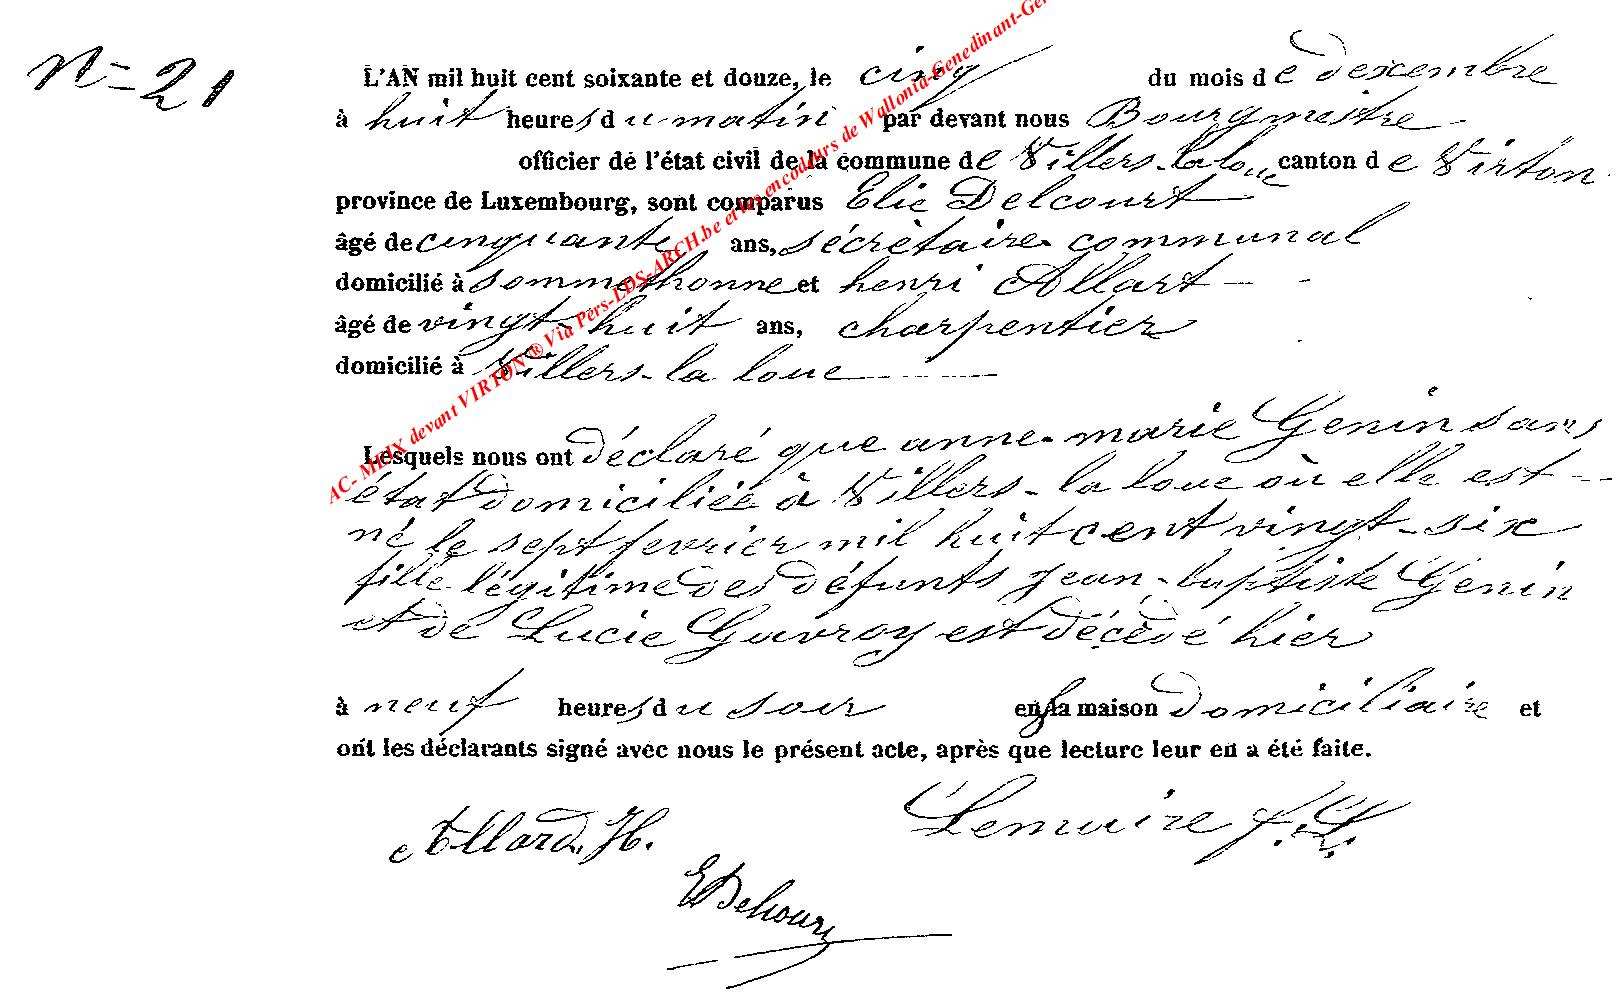 N= 21
L'AN mil huit cent soixante et douze, le cinq du mois de dexcembre
à huit heures du matin par devant nous Bourgmestre
officier de l'état civil de la commune de Villers-la loue canton de Virton
province de Luxembourg, sont comparus Elie Delcourt
âgé de cinquante ans, sécrètaire communal
domicilié à sommethonne et henri Allart
âgé de vingt-huit ans, charpentier
domicilié à Villers-la loue
Lesquels nous ont déclaré que anne-marie Genin sans
état domiciliée à Villers-la loue où elle est
né le sept fevrier mil huit cent vingt-six
fille légitime des défunts jean-baptiste Genin
et de Lucie Gavroy est décédé hier
à neuf heures du soir en sa maison domiciliaire et
ont les déclarants signé avec nous le présent acte, après que lecture leur en a été faite.
Allard. H. Lemaire f.
EDelcourt
AC- MEIX devant VIRTON ® Via Pers-LDS-ARCH.be et les encodeurs de Wallonia-Genedinant-Gen